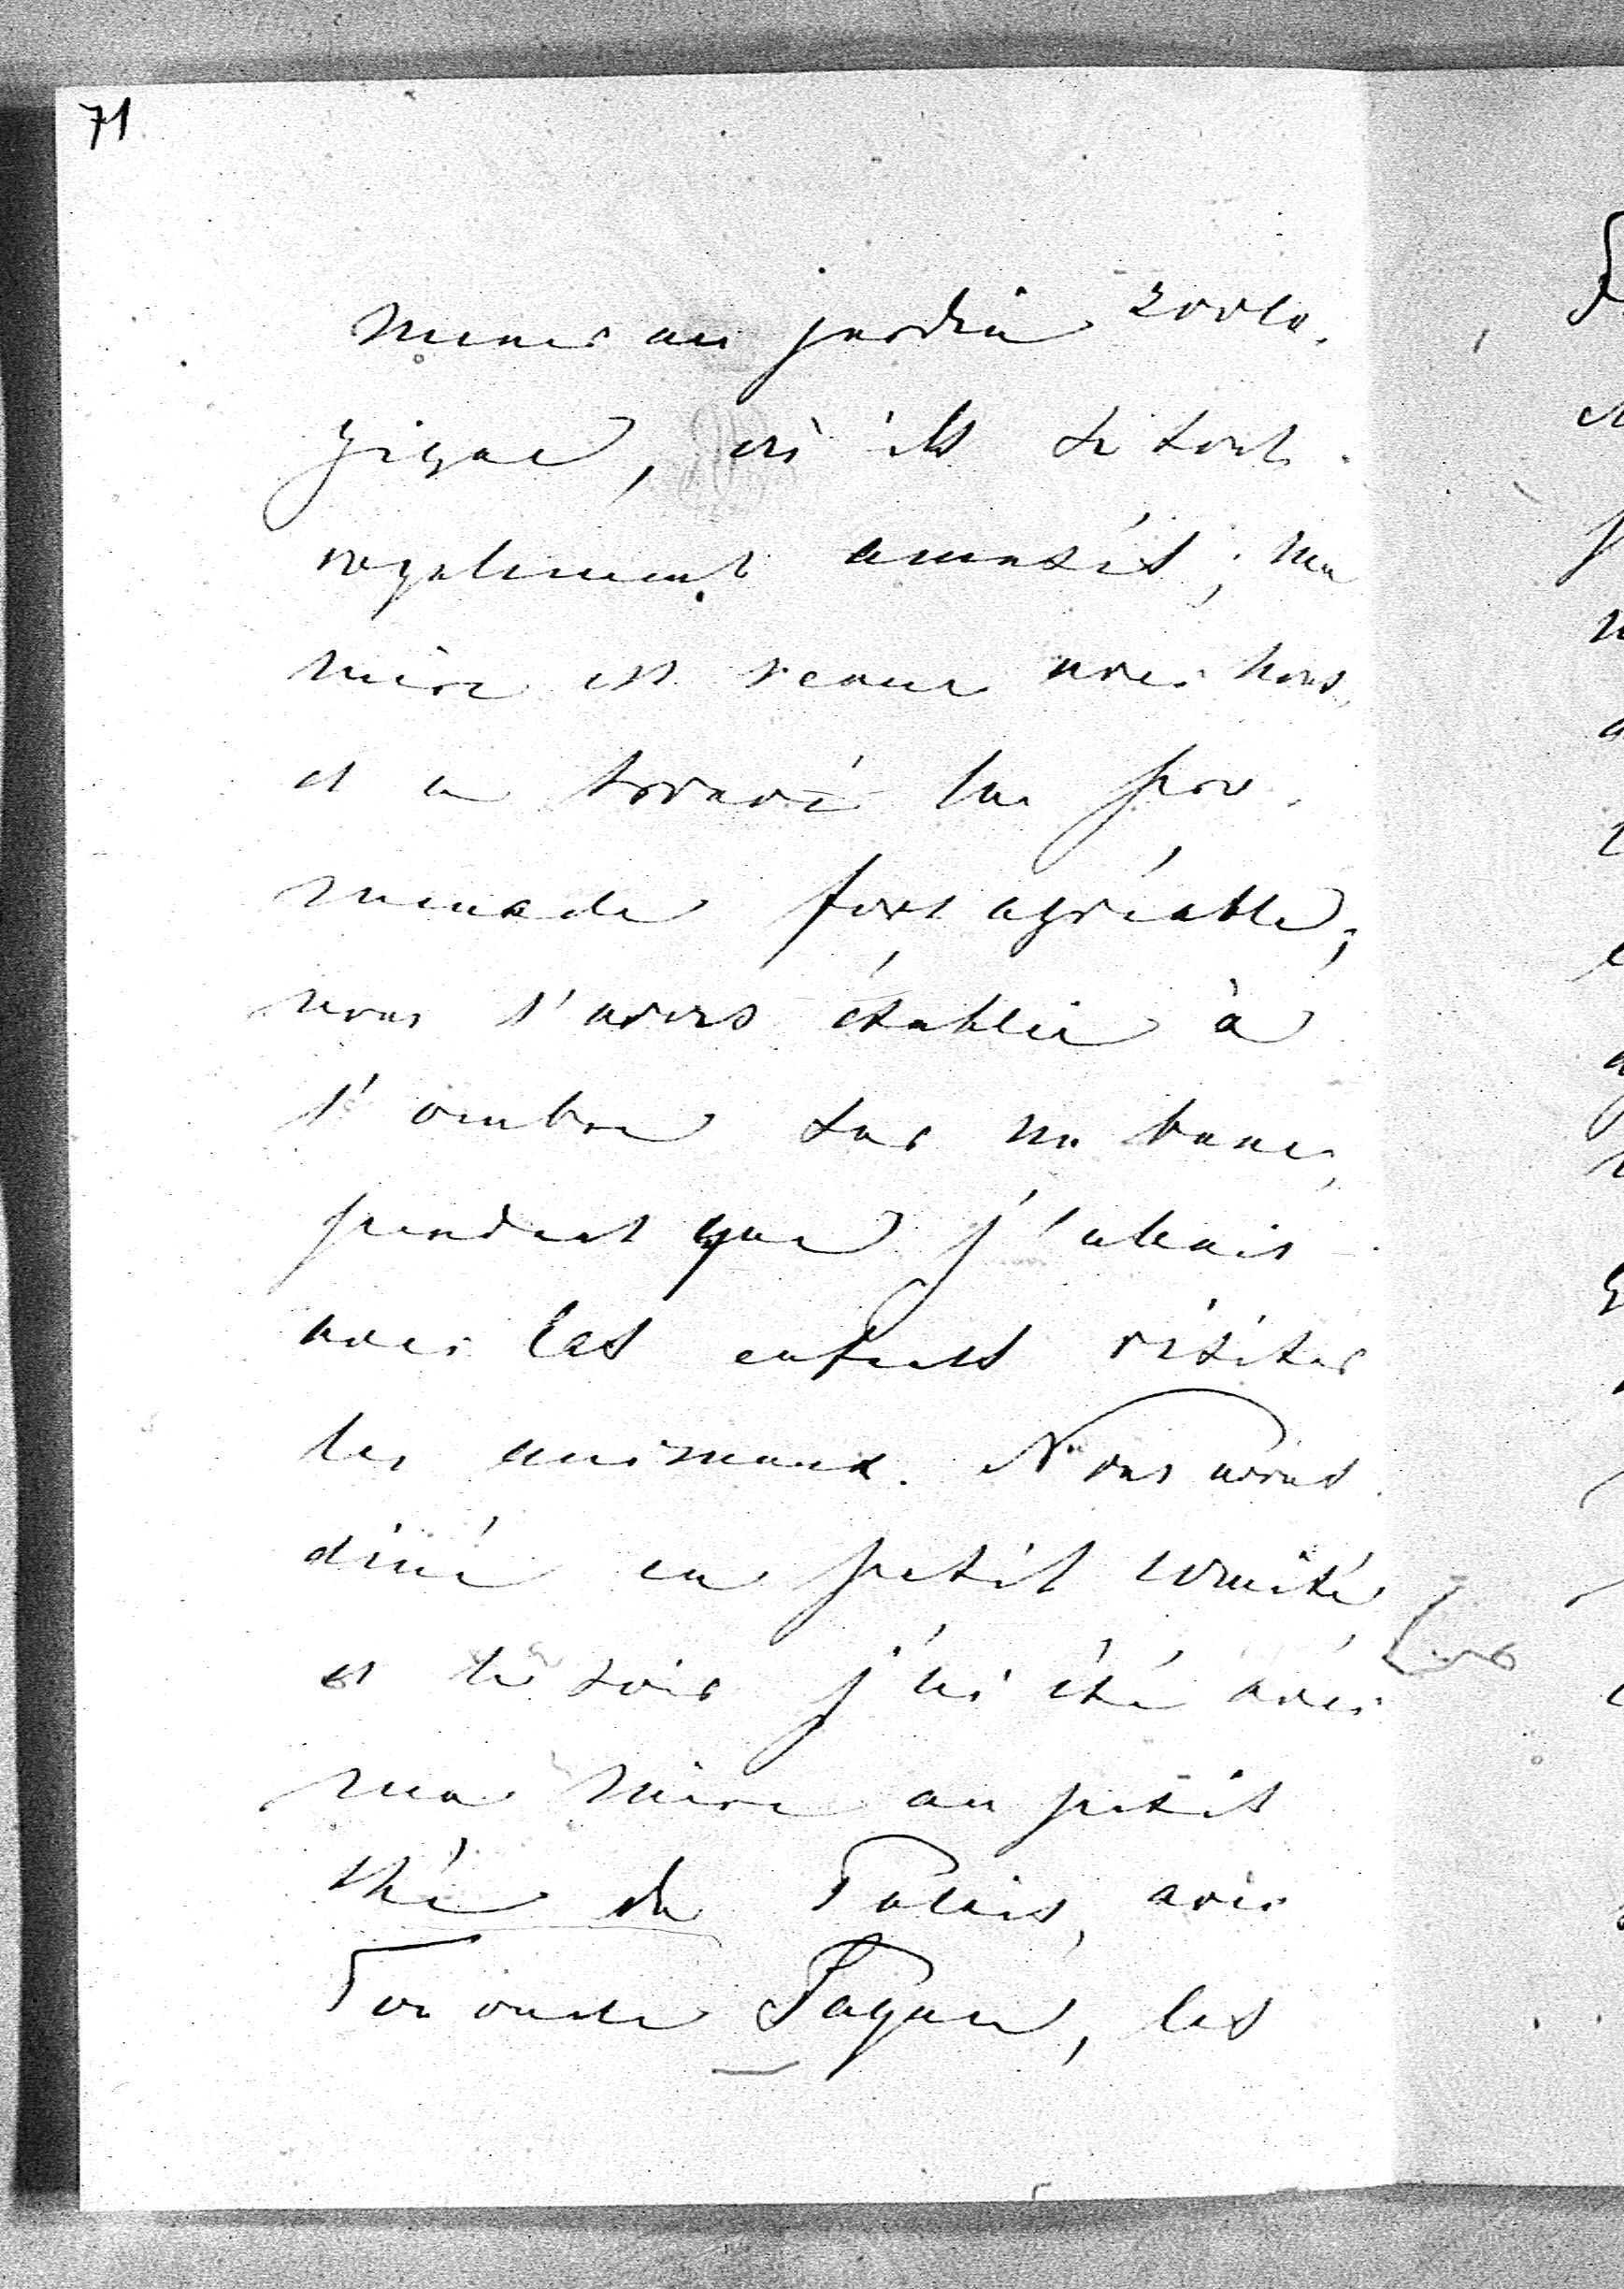 71
mener au jardin zoolo-
gique, où ils se sont
royalement amusés; ma
mère est venue avec nous,
et a trouvé la pro-
menade fort agréable;
nous l'avons établie à
l'ombre sur un banc,
pendant que j'allais
avec les enfants visiter
les animaux. Nous avons
dîné en petit comité,
et le soir j'ai été avec
ma mère au petit
thé du Palais, avec
Ton oncle, les